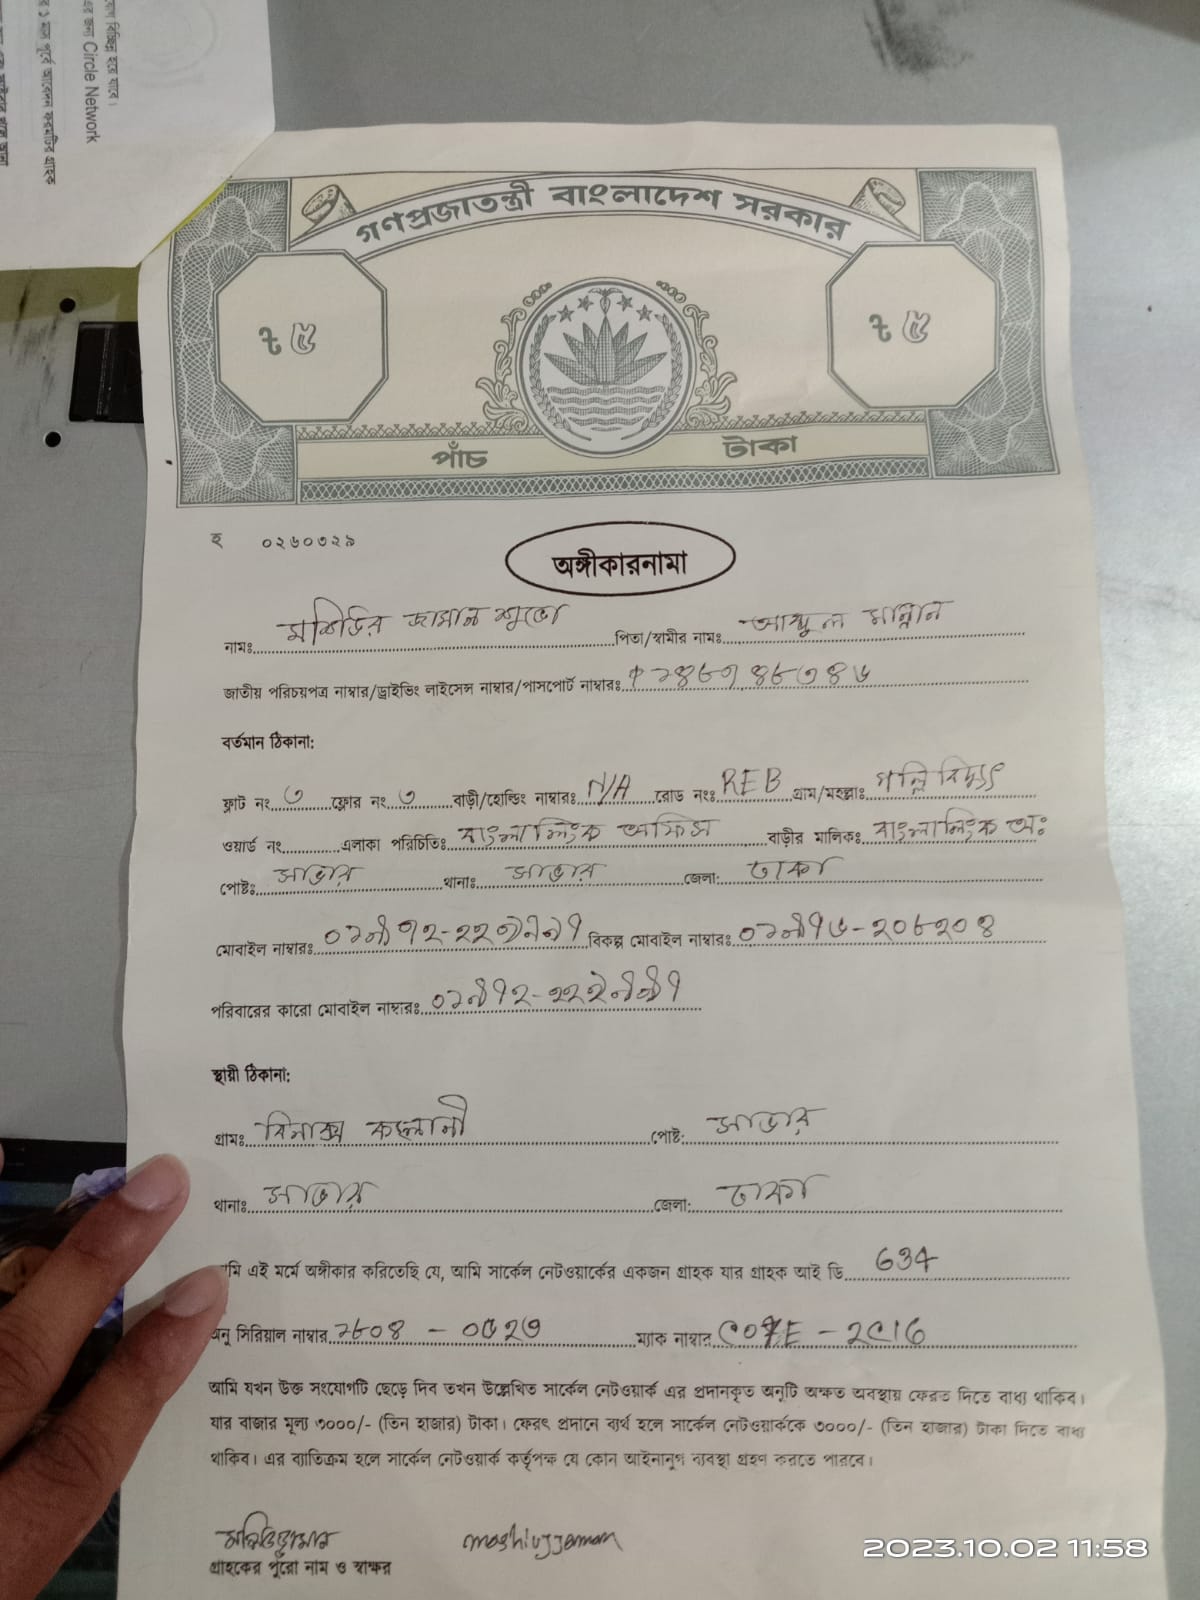 যোগ বিচ্ছিন্ন হয়ে যাবে।
এর জন্য Circle Network
র ১ মাস পূর্বে আবেদন ফরমটির গ্রাহক
গণপ্রজাতন্ত্রী বাংলাদেশ সরকার
৳ ৫
৳ ৫
পাঁচ টাকা
হ ০২৬০৩২৯
অঙ্গীকারনামা
নামঃ মশিউর জামান শুভো পিতা/স্বামীর নামঃ আব্দুল মান্নান
জাতীয় পরিচয়পত্র নাম্বার/ড্রাইভিং লাইসেন্স নাম্বার/পাসপোর্ট নাম্বারঃ
বর্তমান ঠিকানা:
ফ্লাট নং ৩ ফ্লোর নং ৩ বাড়ী/হোল্ডিং নাম্বারঃ N/A রোড নংঃ REB গ্রাম/মহল্লাঃ পল্লি বিদ্যুৎ
ওয়ার্ড নং এলাকা পরিচিতিঃ বাংলালিংক অফিস বাড়ীর মালিকঃ বাংলালিংক অঃ
পোষ্টঃ সাভার থানাঃ সাভার জেলা: ঢাকা
মোবাইল নাম্বারঃ বিকল্প মোবাইল নাম্বারঃ ০১৯১৬-২০৮২০৪
পরিবারের কারো মোবাইল নাম্বারঃ
স্থায়ী ঠিকানা:
গ্রামঃ পোষ্ট: সাভার
থানাঃ সাভার জেলা: ঢাকা
মি এই মর্মে অঙ্গীকার করিতেছি যে, আমি সার্কেল নেটওয়ার্কের একজন গ্রাহক যার গ্রাহক আই ডি 634
অনু সিরিয়াল নাম্বার ম্যাক নাম্বার
আমি যখন উক্ত সংযোগটি ছেড়ে দিব তখন উল্লেখিত সার্কেল নেটওয়ার্ক এর প্রদানকৃত অনুটি অক্ষত অবস্থায় ফেরত দিতে বাধ্য থাকিব।
যার বাজার মূল্য ৩০০০/- (তিন হাজার) টাকা। ফেরৎ প্রদানে ব্যর্থ হলে সার্কেল নেটওয়ার্ককে ৩০০০/- (তিন হাজার) টাকা দিতে বাধ্য
থাকিব। এর ব্যাতিক্রম হলে সার্কেল নেটওয়ার্ক কর্তৃপক্ষ যে কোন আইনানুগ ব্যবস্থা গ্রহণ করতে পারবে।
moshiujjaman
গ্রাহকের পুরো নাম ও স্বাক্ষর
2023.10.02 11:58